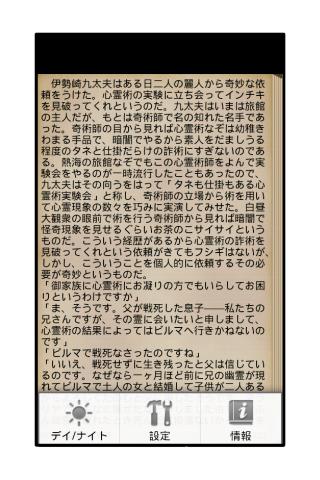 伊勢崎九太夫はある日二人の麗人から奇妙な依
頼をうけた。心霊術の実験に立ち会ってインチキ
を見破ってくれというのだ。九太夫はいまは旅館
の主人だが、もとは奇術師で名の知れた名手であ
った。奇術師の目から見れば心霊術なぞは幼稚き
わまる手品で、暗闇でやるから素人をだましうる
程度のタネと仕掛だらけの詐術にすぎないのであ
る。熱海の旅館なぞでもこの心霊術師をよんで実
験会をやるのが一時流行したこともあったので、
九太夫はその向うをはって「タネも仕掛もある心
霊術実験会」と称し、奇術師の立場から術を用い
て心霊現象の数々を巧みに実演してみせた。白昼
大観衆の眼前で術を行う奇術師から見れば暗闇で
怪奇現象を見せるぐらいお茶のこサイサイという
ものだ。こういう経歴があるから心霊術の詐術を
見破ってくれという依頼がきてもフシギはないが、
しかし、こういうことを個人的に依頼するその必
要が奇妙というものだ。
「御家族に心霊術にお凝りの方でもいらしてお困
りというわけですか」
「ま、そうです。父が戦死した息子――私たちの
兄さんですが、その霊に会いたいと申しまして、
心霊術の結果によってはビルマへ行きかねないの
です」
「ビルマで戦死なさったのですね」
「いいえ、戦死せずに生き残ったと父は信じてい
るのです。なぜなら一ヶ月ほど前に兄の幽霊が現
れてビルマで土人の女と結婚して子供が二人ある
デイ/ナイト
設定
情報